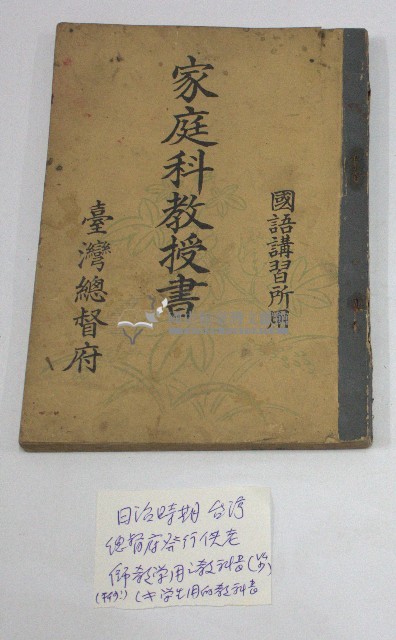 國語講習所用
家庭科教授書
臺灣總督府
日治時期 台湾
總督府發行供老
師教學用之教科書(少)
(特少!) 學生用的教科書